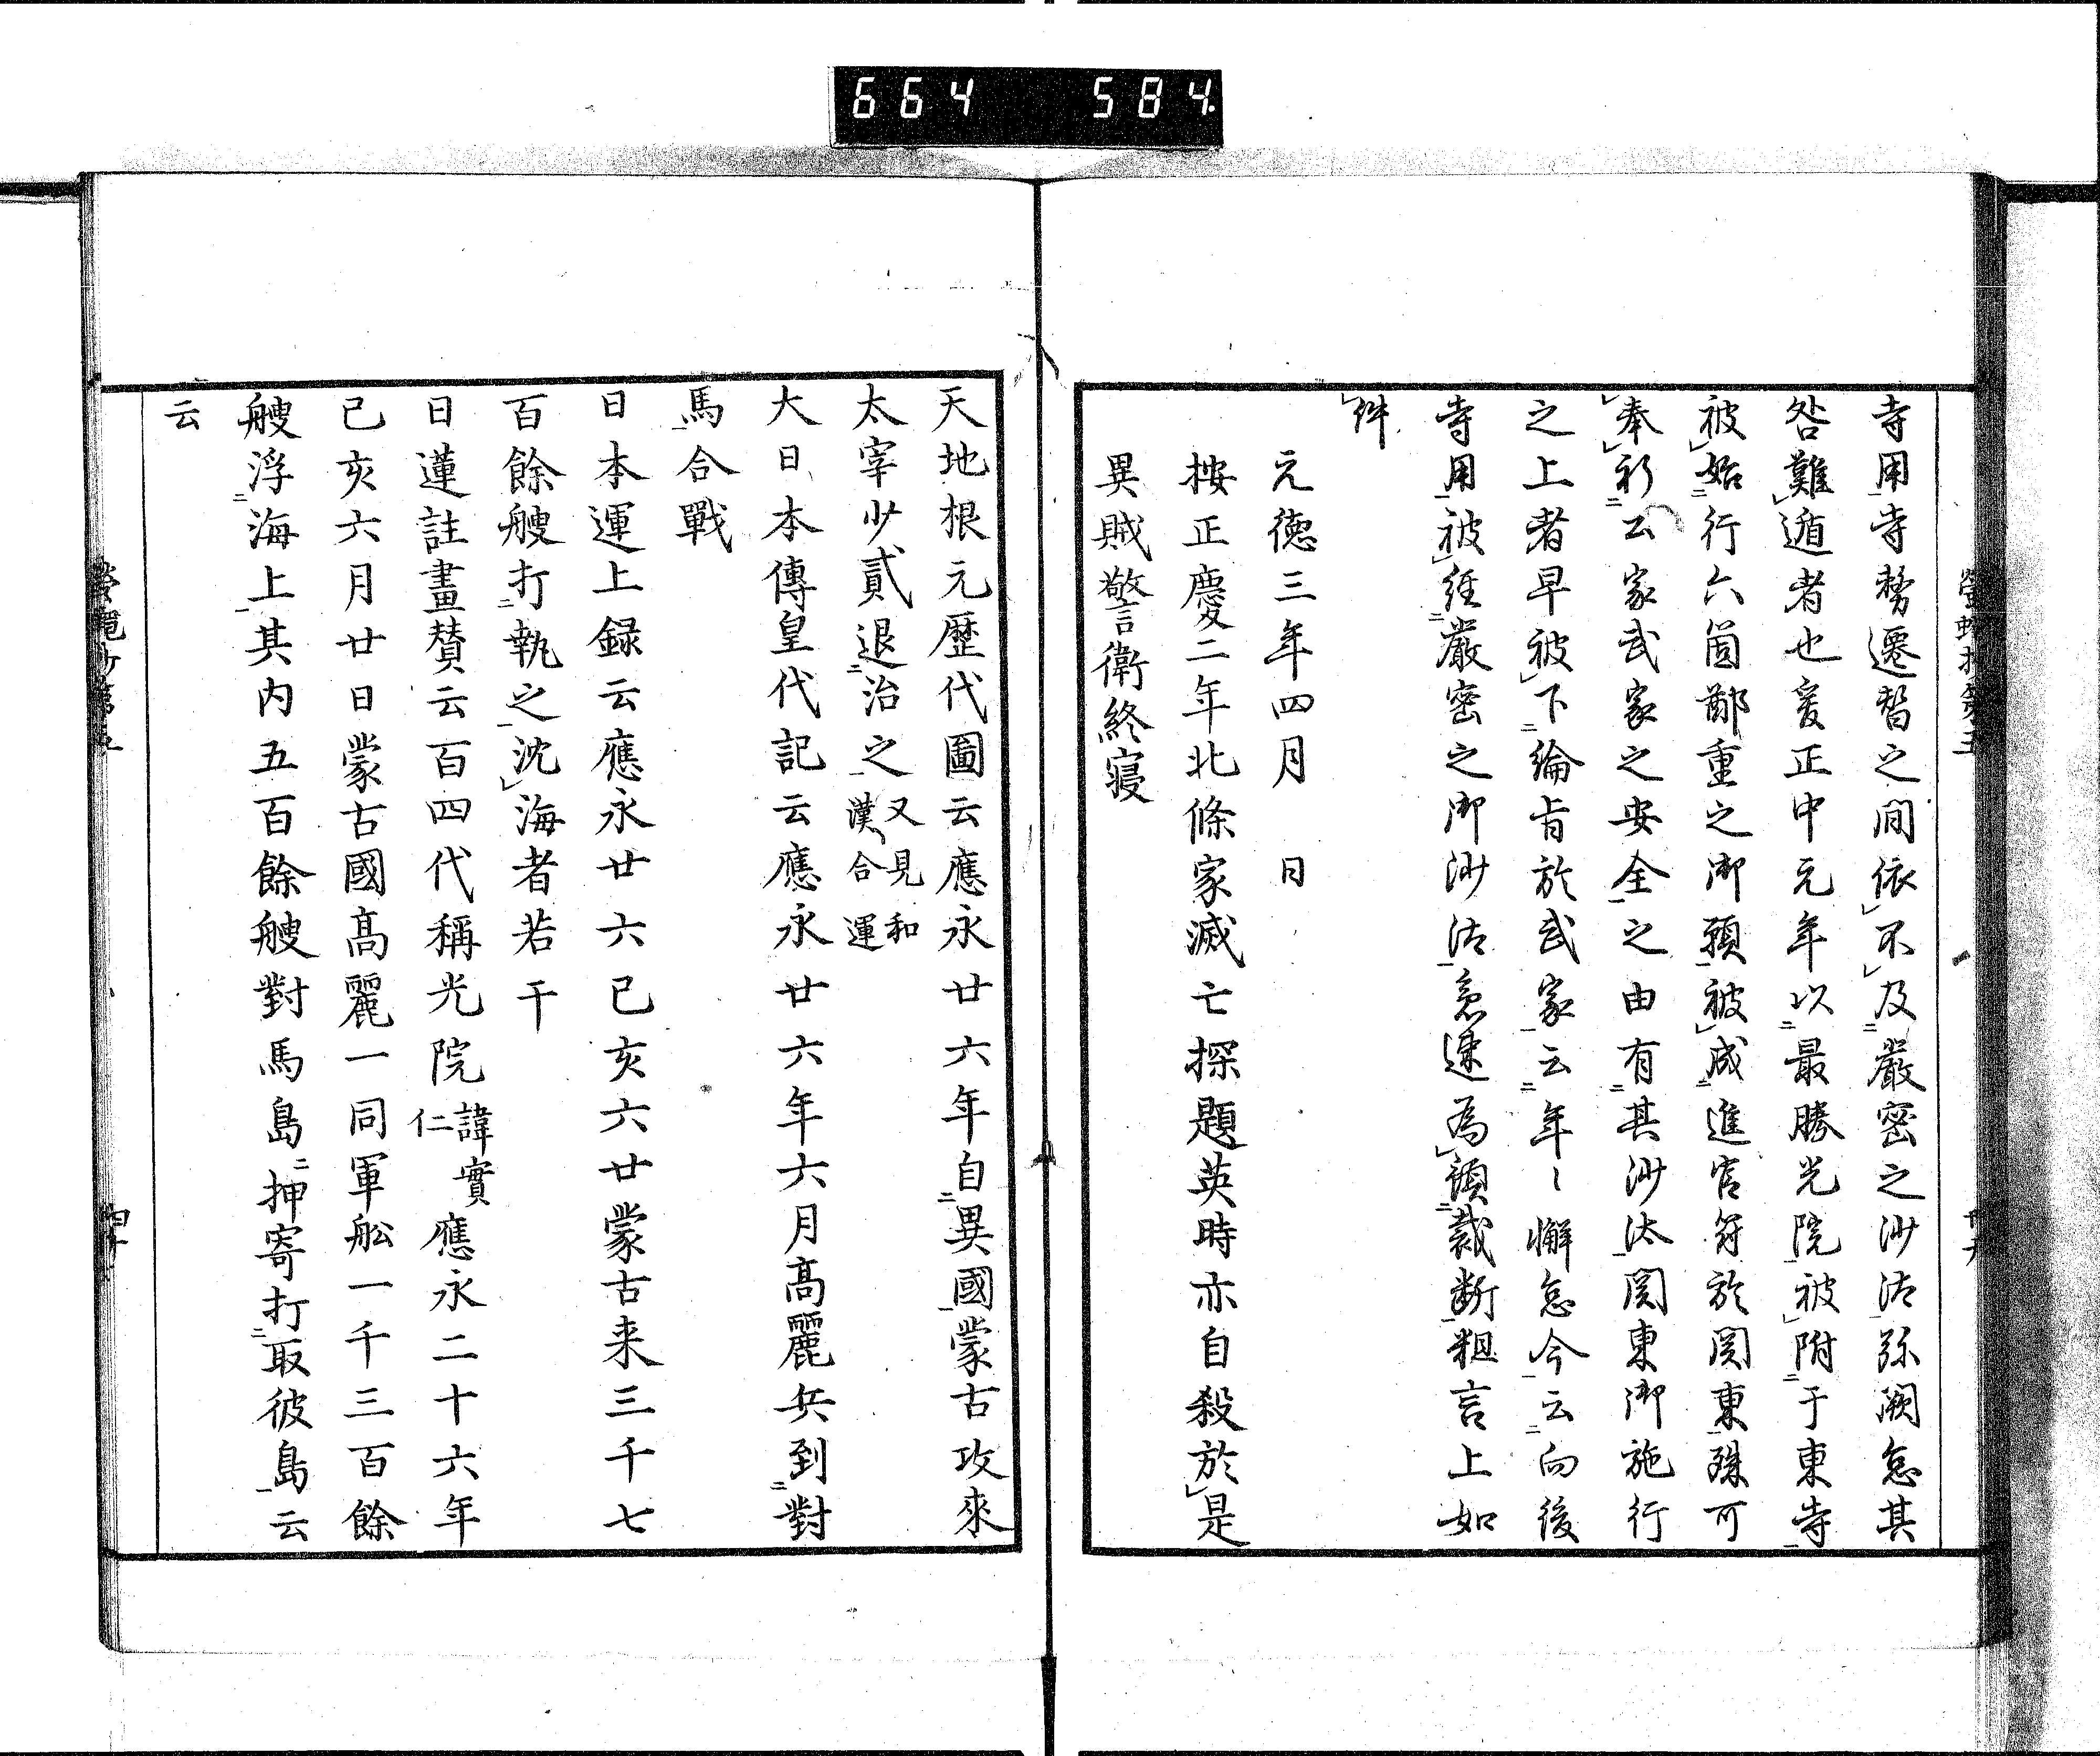 664 584
寺用寺勢遷替之間依不及嚴密之沙汰弥闕怠其
咎難遁者也爰正中元年以最勝光院被附于東寺
被始行六箇鄭重之御願被成進官符於関東殊可
奉祈公家武家之安全之由有其沙汰関東御施行
之上者早被下綸旨於武家云年〻懈怠今云向後
寺用被経嚴密之御沙汰急速為預裁断粗言上如
件
元徳三年四月 日
按正慶二年北條家滅亡探題英時亦自殺於是
異賊警衛終寝
天地根元歴代圖云應永廿六年自異國蒙古攻來
太宰少貳退治之
又見和
漢合運
大日本傳皇代記云應永廿六年六月高麗兵到對
馬合戰
日本運上録云應永廿六己亥六廿蒙古来三千七
百餘艘打執之沈海者若干
日蓮註畫賛云百四代稱光院
諱實
仁
應永二十六年
己亥六月廿日蒙古國高麗一同軍舩一千三百餘
艘浮海上其内五百餘艘對馬島押寄打取彼島云
云